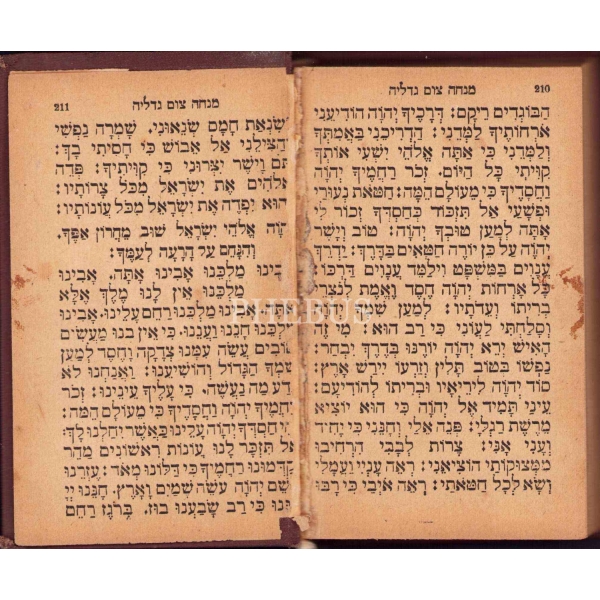 210
מנחה צום גדליה
הַבּוֹגְדִים רֵיקָם: דְּרָכֶיךָ יְהוָה הוֹדִיעֵנִי
אֹרְחוֹתֶיךָ לַמְּדֵנִי: הַדְרִיכֵנִי בַאֲמִתֶּךָ
וְלַמְּדֵנִי כִּי אַתָּה אֱלֹהֵי יִשְׁעִי אוֹתְךָ
קִוִּיתִי כָּל הַיּוֹם. זְכֹר רַחֲמֶיךָ יְהוָה
וַחֲסָדֶיךָ כִּי מֵעוֹלָם הֵמָּה: חַטֹּאות נְעוּרַי
וּפְשָׁעַי אַל תִּזְכּוֹר כְּחַסְדְּךָ זְכוֹר לִי
אַתָּה לְמַעַן טוּבְךָ יְהוָה: טוֹב וְיָשָׁר
יְהוָה עַל כֵּן יוֹרֶה חַטָּאִים בַּדָּרֶךְ: יַדְרֵךְ
עֲנָוִים בַּמִּשְׁפָּט וִילַמֵּד עֲנָוִים דַּרְכּוֹ:
כָּל אָרְחוֹת יְהוָה חֶסֶד וֶאֱמֶת לְנֹצְרֵי
בְרִיתוֹ וְעֵדֹתָיו: לְמַעַן שִׁמְךָ יְהוָה
וְסָלַחְתָּ לַעֲוֹנִי כִּי רַב הוּא: מִי זֶה
הָאִישׁ יְרֵא יְהוָה יוֹרֶנּוּ בְּדֶרֶךְ יִבְחָר:
נַפְשׁוֹ בְּטוֹב תָּלִין וְזַרְעוֹ יִירַשׁ אָרֶץ:
סוֹד יְהוָה לִירֵאָיו וּבְרִיתוֹ לְהוֹדִיעָם:
עֵינַי תָּמִיד אֶל יְהוָה כִּי הוּא יוֹצִיא
מֵרֶשֶׁת רַגְלָי: פְּנֵה אֵלַי וְחָנֵּנִי כִּי יָחִיד
וְעָנִי אָנִי: צָרוֹת לְבָבִי הִרְחִיבוּ
מִמְּצוּקוֹתַי הוֹצִיאֵנִי: רְאֵה עָנְיִי וַעֲמָלִי
וְשָׂא לְכָל חַטֹּאתָי: רְאֵה אֹיְבַי כִּי רָבּוּ
211
מנחה צום גדליה
שִׂנְאַת חָמָס שְׂנֵאוּנִי. שָׁמְרָה נַפְשִׁי
הַצִּילֵנִי אַל אֵבוֹשׁ כִּי חָסִיתִי בָךְ:
וָיֹשֶׁר יִצְּרוּנִי כִּי קִוִּיתִיךָ: פְּדֵה
אֱלֹהִים אֶת יִשְׂרָאֵל מִכֹּל צָרוֹתָיו:
הוּא יִפְדֶה אֶת יִשְׂרָאֵל מִכֹּל עֲוֹנוֹתָיו:
אֱלֹהֵי יִשְׂרָאֵל שׁוּב מֵחֲרוֹן אַפֶּךָ.
וְהִנָּחֵם עַל הָרָעָה לְעַמֶּךָ:
מַלְכֵּנוּ אָבִינוּ אַתָּה. אָבִינוּ
מַלְכֵּנוּ אֵין לָנוּ מֶלֶךְ אֶלָּא
מַלְכֵּנוּ רַחֵם עָלֵינוּ. אָבִינוּ
חָנֵּנוּ וַעֲנֵנוּ. כִּי אֵין בָּנוּ מַעֲשִׂים
עֲשֵׂה עִמָּנוּ צְדָקָה וָחֶסֶד לְמַעַן
הַגָּדוֹל וְהוֹשִׁיעֵנוּ: וַאֲנַחְנוּ לֹא
מַה נַּעֲשֶׂה. כִּי עָלֶיךָ עֵינֵינוּ: זְכֹר
רַחֲמֶיךָ יְהוָה וַחֲסָדֶיךָ כִּי מֵעוֹלָם הֵמָּה:
חַסְדְּךָ יְהוָה עָלֵינוּ כַּאֲשֶׁר יִחַלְנוּ לָךְ:
תִּזְכָּר לָנוּ עֲוֹנוֹת רִאשׁוֹנִים מַהֵר
יְקַדְּמוּנוּ רַחֲמֶיךָ כִּי דַלּוֹנוּ מְאֹד: עֶזְרֵנוּ
בְּשֵׁם יְהוָה עֹשֵׂה שָׁמַיִם וָאָרֶץ. חָנֵּנוּ יְיָ
כִּי רַב שָׂבַעְנוּ בוּז. בְּרֹגֶז רַחֵם
PHEBUS